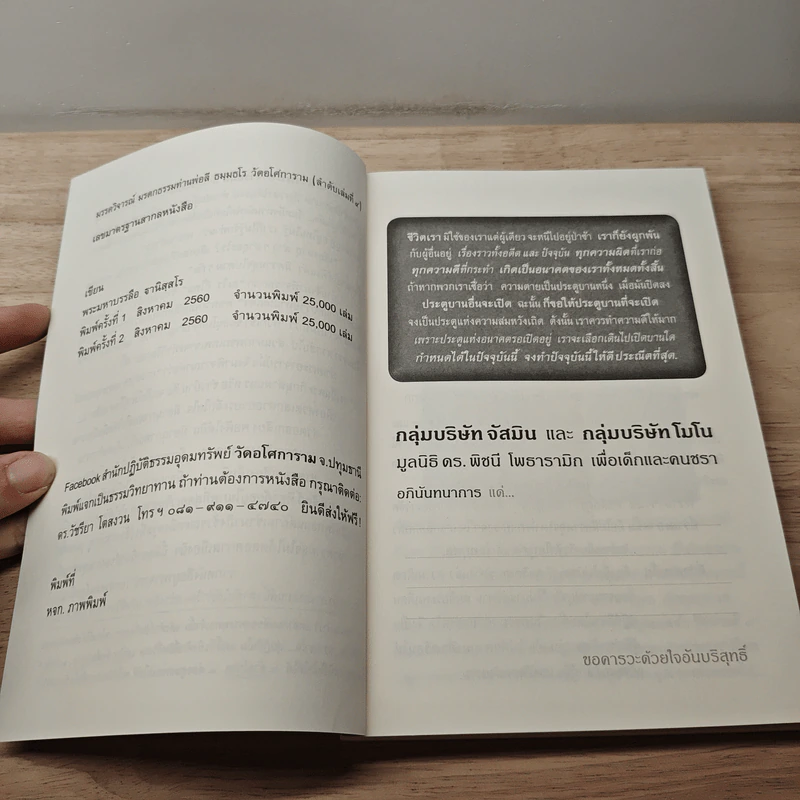 มรรควิจารณ์ มรดกธรรมท่านพ่อลี ธมฺมธโร วัดอโศการาม (ลำดับเล่มที่ ๙)
เลขมาตรฐานสากลหนังสือ
เขียน
พระมหาบรรลือ ฐานิสฺสโร
พิมพ์ครั้งที่ 1 สิงหาคม 2560 จำนวนพิมพ์ 25,000 เล่ม
พิมพ์ครั้งที่ 2 สิงหาคม 2560 จำนวนพิมพ์ 25,000 เล่ม
Facebook สำนักปฏิบัติธรรมอุดมทรัพย์ วัดอโศการาม จ.ปทุมธานี
พิมพ์แจกเป็นธรรมวิทยาทาน ถ้าท่านต้องการหนังสือ กรุณาติดต่อ:
ดร.วัชรียา โตสงวน โทรฯ ๐๘๑-๙๑๑-๔๗๔๐ ยินดีส่งให้ฟรี!
พิมพ์ที่
หจก. ภาพพิมพ์
ชีวิตเรา มิใช่ของเราแต่ผู้เดียว จะหนีไปอยู่ป่าช้า เราก็ยังผูกพัน
กับผู้อื่นอยู่ เรื่องราวทั้งอดีต และ ปัจจุบัน ทุกความผิดที่เราก่อ
ทุกความดีที่กระทำ เกิดเป็นอนาคตของเราทั้งหมดทั้งสิ้น
ถ้าหากพวกเราเชื่อว่า ความตายเป็นประตูบานหนึ่ง เมื่อมันปิดลง
ประตูบานอื่นจะเปิด ฉะนั้น ก็ขอให้ประตูบานที่จะเปิด
จงเป็นประตูแห่งความสมหวังเถิด ดังนั้น เราควรทำความดีให้มาก
เพราะประตูแห่งอนาคตรอเปิดอยู่ เราจะเลือกเดินไปเปิดบานใด
กำหนดได้ในปัจจุบันนี้ จงทำปัจจุบันนี้ให้ดี ประณีตที่สุด.
กลุ่มบริษัท จัสมิน และ กลุ่มบริษัท โมโน
มูลนิธิ ดร. พิชนี โพธารามิก เพื่อเด็กและคนชรา
อภินันทนาการ แด่...
ขอคารวะด้วยใจอันบริสุทธิ์